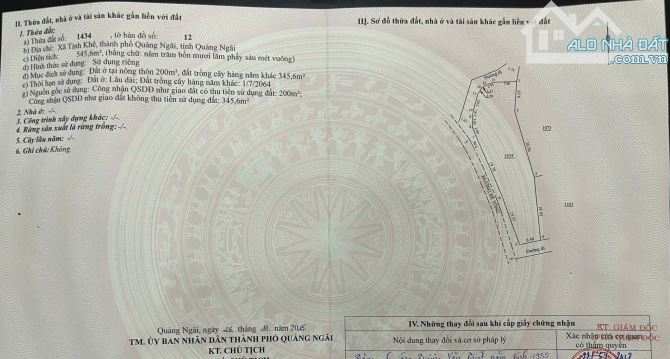 II. Thửa đất, nhà ở và tài sản khác gắn liền với đất
1. Thửa đất:
a) Thửa đất số: 1434 , tờ bản đồ số: 12
b) Địa chỉ: Xã Tịnh Khê, thành phố Quảng Ngãi, tỉnh Quảng Ngãi
c) Diện tích: 545,6m², (bằng chữ: năm trăm bốn mươi lăm phẩy sáu mét vuông)
d) Hình thức sử dụng: Sử dụng riêng
đ) Mục đích sử dụng: Đất ở tại nông thôn 200m², đất trồng cây hàng năm khác 345,6m²
e) Thời hạn sử dụng: Đất ở: Lâu dài; Đất trồng cây hàng năm khác: 1/7/2064
g) Nguồn gốc sử dụng: Công nhận QSDĐ như giao đất có thu tiền sử dụng đất: 200m²;
Công nhận QSDĐ như giao đất không thu tiền sử dụng đất: 345,6m²
2. Nhà ở: -/-
3. Công trình xây dựng khác: -/-
4. Rừng sản xuất là rừng trồng: -/-
5. Cây lâu năm: -/-
6. Ghi chú: Không
Quảng Ngãi, ngày 26 tháng 11 năm 2015
TM. ỦY BAN NHÂN DÂN THÀNH PHỐ QUẢNG NGÃI
KT. CHỦ TỊCH
III. Sơ đồ thửa đất, nhà ở và tài sản khác gắn liền với đất
ALO NHÀ ĐẤT
Đường đi
1073
1434
1101
Đường đi
IV. Những thay đổi sau khi cấp giấy chứng nhận
Nội dung thay đổi và cơ sở pháp lý
Xác nhận của cơ quan
có thẩm quyền
KT. GIÁM ĐỐC
GIÁM ĐỐC